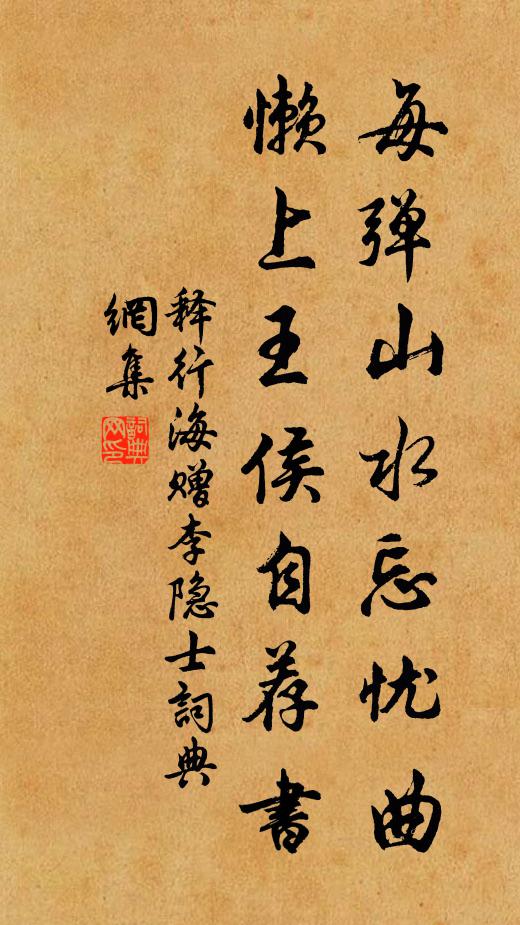 每弹山水忘忧曲
懒上王侯自荐書
释行海赠李隐士詞典
網集
詞典
网印